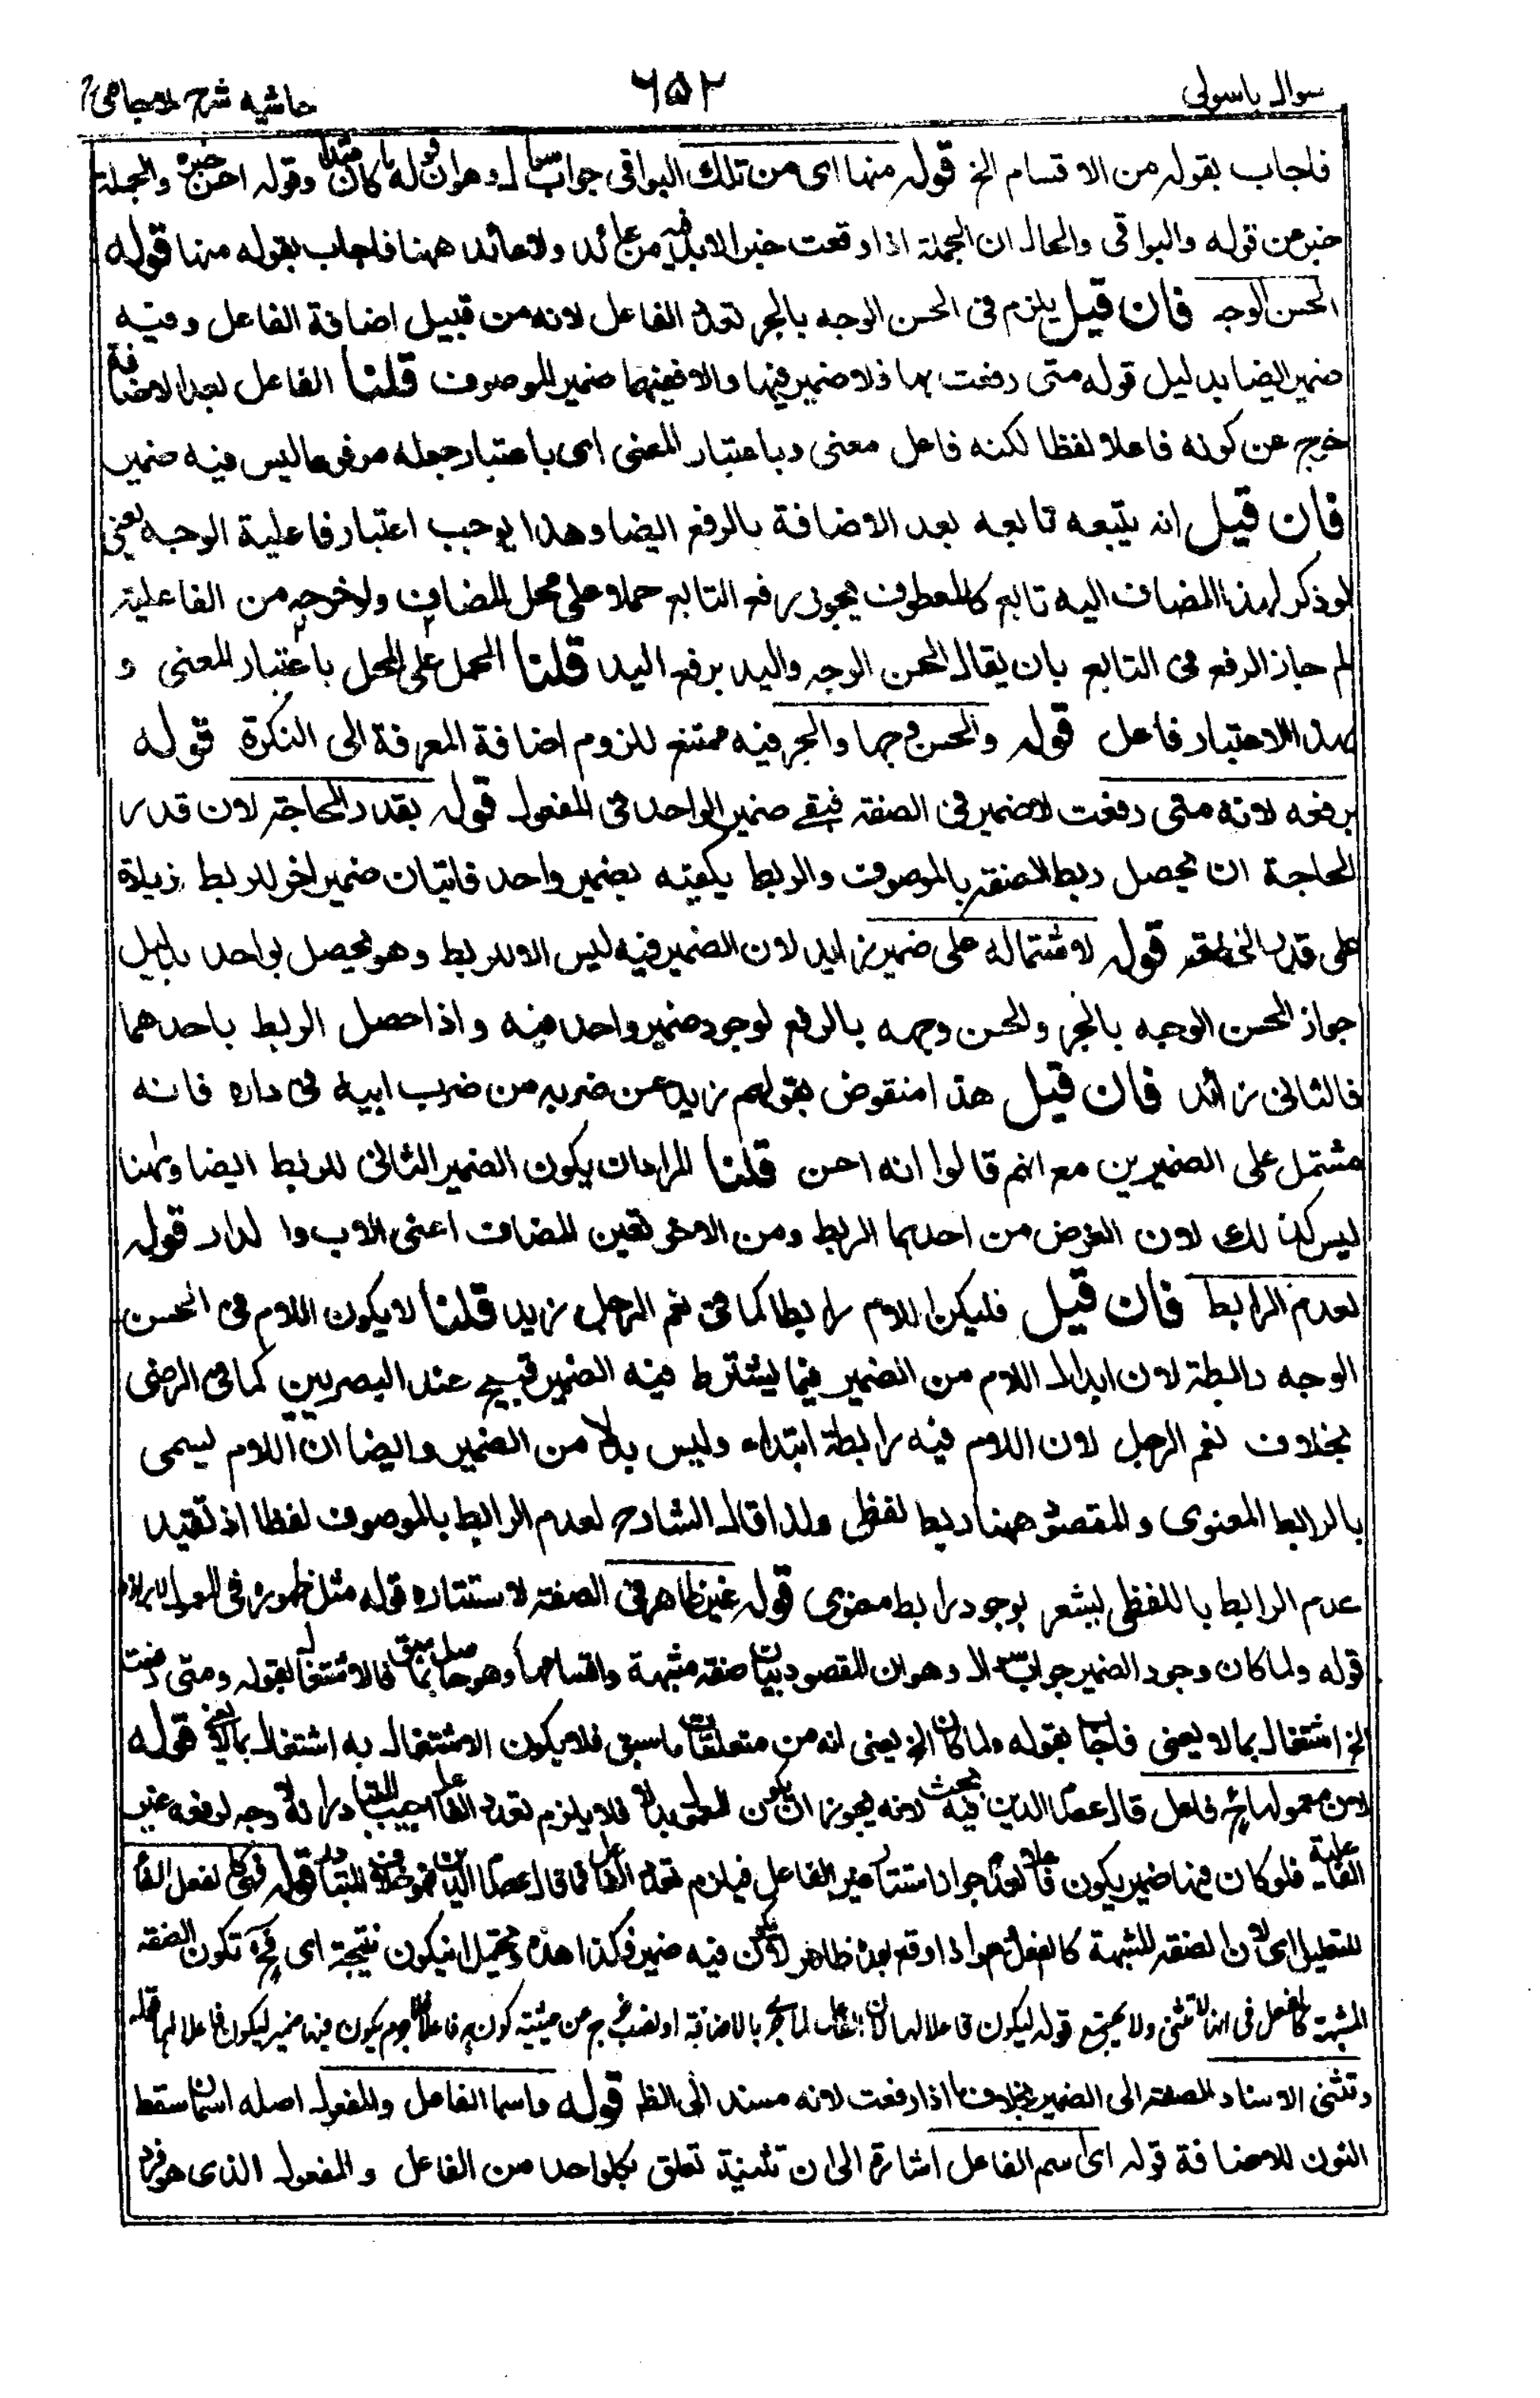 سوال باسولی ٦٥٢ حاشیه شرح ملاجامی
فاجاب بقوله من الاقسام الخ قوله منها ای من تلک البواقی جواب سوال وهو ان قوله ما کان مبتدا وقوله احسن خبره والجملة
خبر عن قوله والبواقی والحال ان الجملة اذا وقعت خبرا لابد فیه من عائد ولا عائد ههنا فاجاب بقوله منها قوله
الحسن الوجه فان قیل یلزم فی الحسن الوجه بالجر تعدد الفاعل لانه من قبیل اضافة الفاعل وفیه
ضمیر ایضا بدلیل قوله متی رفعت بها فلا ضمیر فیها والا ففیها ضمیر الموصوف قلنا الفاعل بعد الاضافة
خرج عن کونه فاعلا لفظا لکنه فاعل معنی وباعتبار المعنی ای باعتبار جعله مرفوعا لیس فیه ضمیر
فان قیل انه یتبعه تابعه بعد الاضافة بالرفع ایضا وهذا یوجب اعتبار فاعلیة الوجه یعنی
لو ذکر لهذا المضاف الیه تابع کالمعطوف یجوز رفع التابع حملا علی محل المضاف ولو خرج من الفاعلیة
لم جاز الرفع فی التابع بان یقال الحسن الوجه والید برفع الید قلنا الحمل علی المحل باعتبار المعنی و
بهذا الاعتبار فاعل قوله والحسن وجها والجر فیه ممتنع للزوم اضافة المعرفة الی النکرة قوله
برفعه لانه متی رفعت لا ضمیر فی الصفة فبقی ضمیر الواحد فی المفعول قوله بقدر الحاجة لان قدر
الحاجة ان یحصل ربط الصفة بالموصوف والربط یکفیه بضمیر واحد فاتیان ضمیر اخر للربط زیادة
علی قدر قوله لاشتماله علی ضمیر زاید لان الضمیر فیه لیس الا للربط وهو یحصل بواحد بدلیل
جواز الحسن الوجه بالجر والحسن وجهه بالرفع لوجود ضمیر واحد فیه واذا حصل الربط باحدهما
فالثانی زائد فان قیل هذا منقوض بقولهم زید عن ضربه من ضرب ابیه فی داره فانه
مشتمل علی الضمیرین مع انهم قالوا انه احسن قلنا المراد ان یکون الضمیر الثانی للربط ایضا وههنا
لیس کذلک لان الغرض من احدهما الربط ومن الاخر تعین المضاف اعنی الاب والدار قوله
لعدم الرابط فان قیل فلیکن اللام رابطا کما فی نعم الرجل زید قلنا لا یکون اللام فی الحسن
الوجه رابطة لان ابدال اللام من الضمیر فیما یشترط فیه الضمیر قبیح عند البصریین کما فی الرضی
بخلاف نعم الرجل لان اللام فیه رابطة ابتداء ولیس بدلا من الضمیر وایضا ان اللام یسمی
بالرابط المعنوی والمقصود ههنا ربط لفظی ولذا قال الشارح لعدم الرابط بالموصوف لفظا اذ تقیید
عدم الرابط باللفظی یشعر بوجود رابط معنوی قوله غیر ظاهر فی الصفة لاستتاره قوله مثل ظهوره فی المعمول
قوله ولما کان وجود الضمیر جواب سوال وهو ان المقصود بیان صفة مشبهة واقسامها وهو حاصل بما سبق فالاشتغال بقوله ومتی رفعت
الخ اشتغال بما لا یعنی فاجاب بقوله ولما کان الخ یعنی انه من متعلقات ما سبق فلا یکون الاشتغال به اشتغال بما لا یعنی قوله
لان معمولها فاعل قال عصام الدین فیه بحث لانه یجوز ان یکون المعمول بدلا فلا یلزم تعدد الفاعل اجیب لانه لا وجه لرفعه غیر
الفاعلیة فلو کان فیها ضمیر یکون فاعلا لعدم جواز استتار غیر الفاعل فیلزم تعدد الفاعل فما قال عصام الدین قوله لفعل الفا
للتعلیل ای لان الصفة المشبهة کالفعل وهو اذا وقع بعده ظاهر لا یکون فیه ضمیر فکذا هذه ویحتمل ان یکون نتیجة ای تکون الصفة
المشبهة کالفعل فی انها لا تثنی ولا یجمع قوله لیکون فاعلا لها لان الفاعل لما جر بالاضافة او نصب خرج من حیثیة کونه فاعلا یکون فیها ضمیر لیکون فاعلا لها قوله
وتثنی الاسناد الصفة الی الضمیر بخلاف ما اذا رفعت لانه مسند الی الظ قوله واسما الفاعل والمفعول اصله اسمان سقط
النون للاضافة قوله ای اسم الفاعل اشارة الی ان تثنیة تعلق بکل واحد من الفاعل والمفعول الذی هو فرد